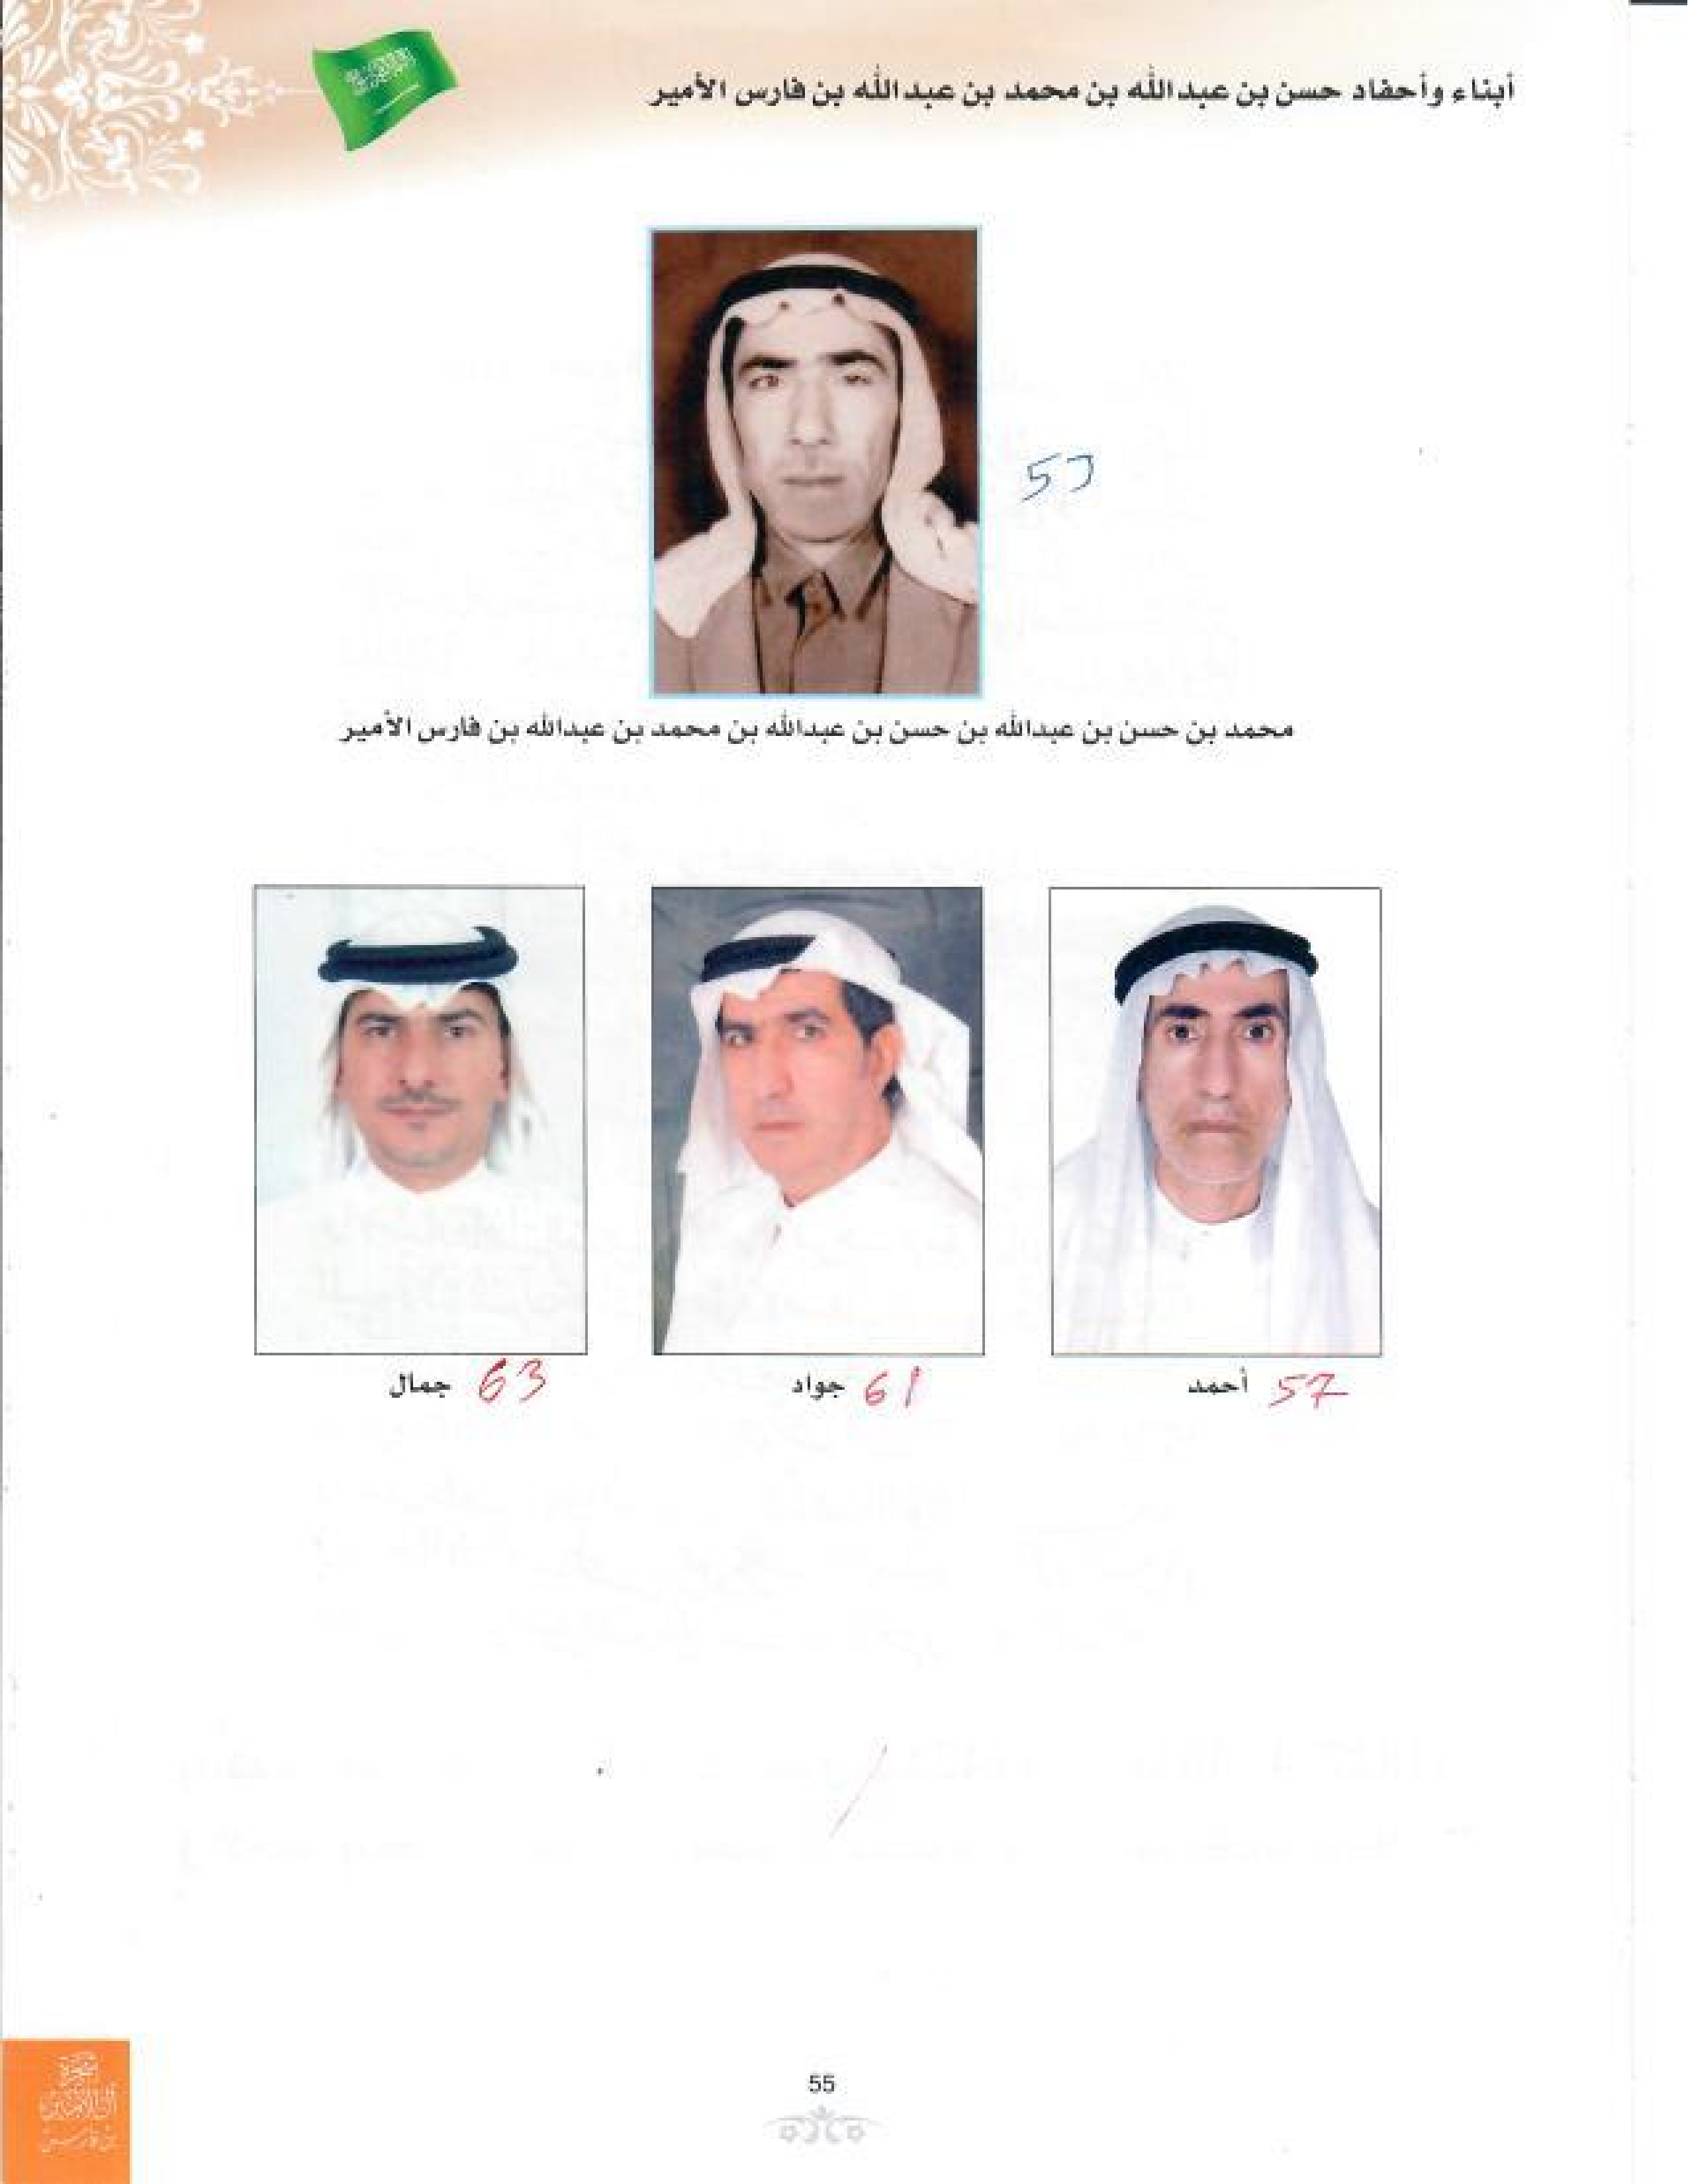 أبناء وأحفاد حسن بن عبدالله بن محمد بن عبدالله بن فارس الأمير
محمد بن حسن بن عبدالله بن حسن بن عبدالله بن محمد بن عبدالله بن فارس الأمير
أحمد 57
جواد 61
جمال 63
55